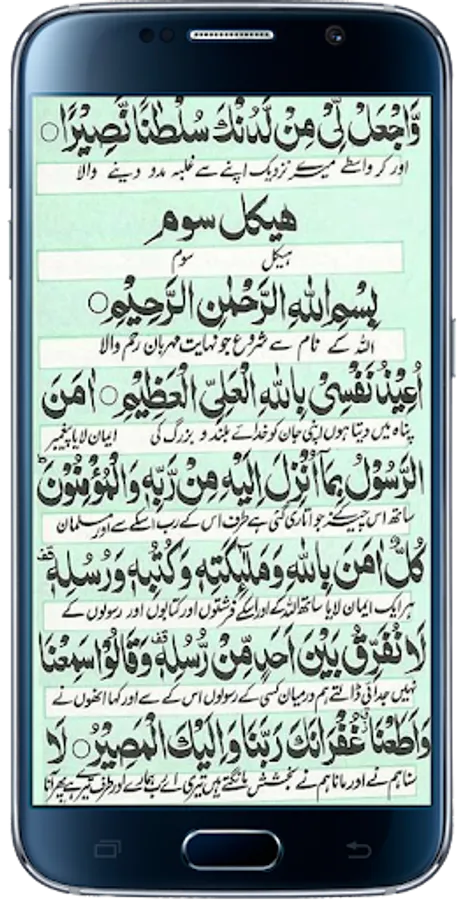 وَّاجْعَلْ لِّىْ مِنْ لَّدُنْكَ سُلْطٰنًا نَّصِيْرًا ○
اور کر واسطے میرے نزدیک اپنے سے غلبہ مدد دینے والا
هيكل سوم
ہیکل سوم
بِسْمِ اللهِ الرَّحْمٰنِ الرَّحِيْمِ ○
اللہ کے نام سے شروع جو نہایت مہربان رحم والا
اُعِيْذُ نَفْسِىْ بِاللهِ الْعَلِىِّ الْعَظِيْمِ ○ اٰمَنَ
پناہ میں دیتا ہوں اپنی جان کو خدائے بلند و بزرگ کی ایمان لایا پیغمبر
الرَّسُوْلُ بِمَآ اُنْزِلَ اِلَيْهِ مِنْ رَّبِّهٖ وَالْمُؤْمِنُوْنَ ؕ
ساتھ اس چیز کے جو اتاری گئی ہے طرف اس کے رب اسکے سے اور مسلمان
كُلٌّ اٰمَنَ بِاللهِ وَمَلٰٓئِكَتِهٖ وَكُتُبِهٖ وَرُسُلِهٖ قف
ہر ایک ایمان لایا ساتھ اللہ کے اور اسکے فرشتوں اور کتابوں اور رسولوں کے
لَا نُفَرِّقُ بَيْنَ اَحَدٍ مِّنْ رُّسُلِهٖ قف وَقَالُوْا سَمِعْنَا
نہیں جدائی ڈالتے ہم درمیان کسی کے رسولوں اس کے سے اور کہا انھوں نے
وَاَطَعْنَا غُفْرَانَكَ رَبَّنَا وَاِلَيْكَ الْمَصِيْرُ ○ لَا
سنا ہم نے اور مانا ہم نے بخشش مانگتے ہیں تیری اے رب ہمارے اور طرف تیرے ہے پھر آنا